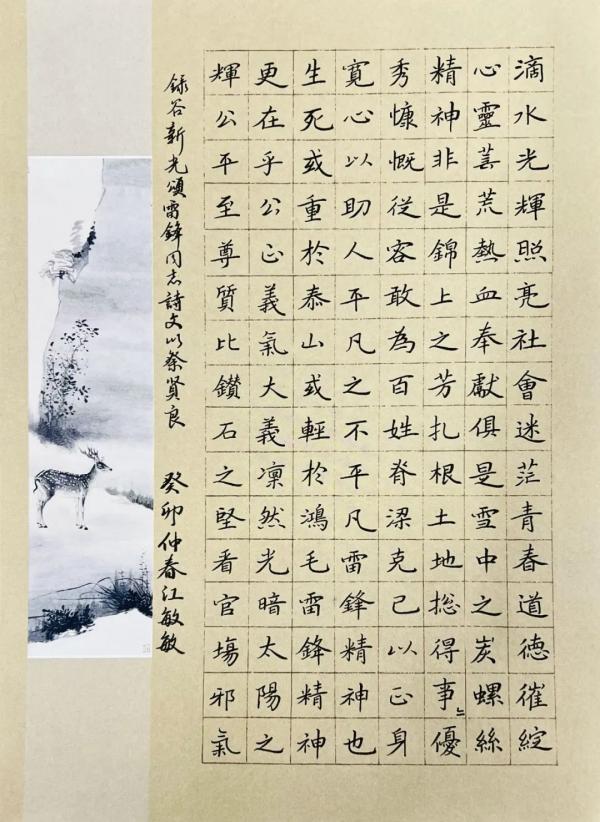 滴水光輝照亮社會迷茫青春道德催綻
心靈善荒熱血奉獻俱是雪中之炭螺絲
精神非是錦上之芳扎根土地総得事〻優
秀慷慨從容敢為百姓脊梁克己以正身
寬心以助人平凡之不平凡雷鋒精神也
生死或重於泰山或輕於鴻毛雷鋒精神
更在乎公正義氣大義凜然光暗太陽之
輝公平至尊質比鑽石之堅看官場邪氣
録谷新光頌雷鋒同志詩文以祭賢良 癸卯仲春江敏敏